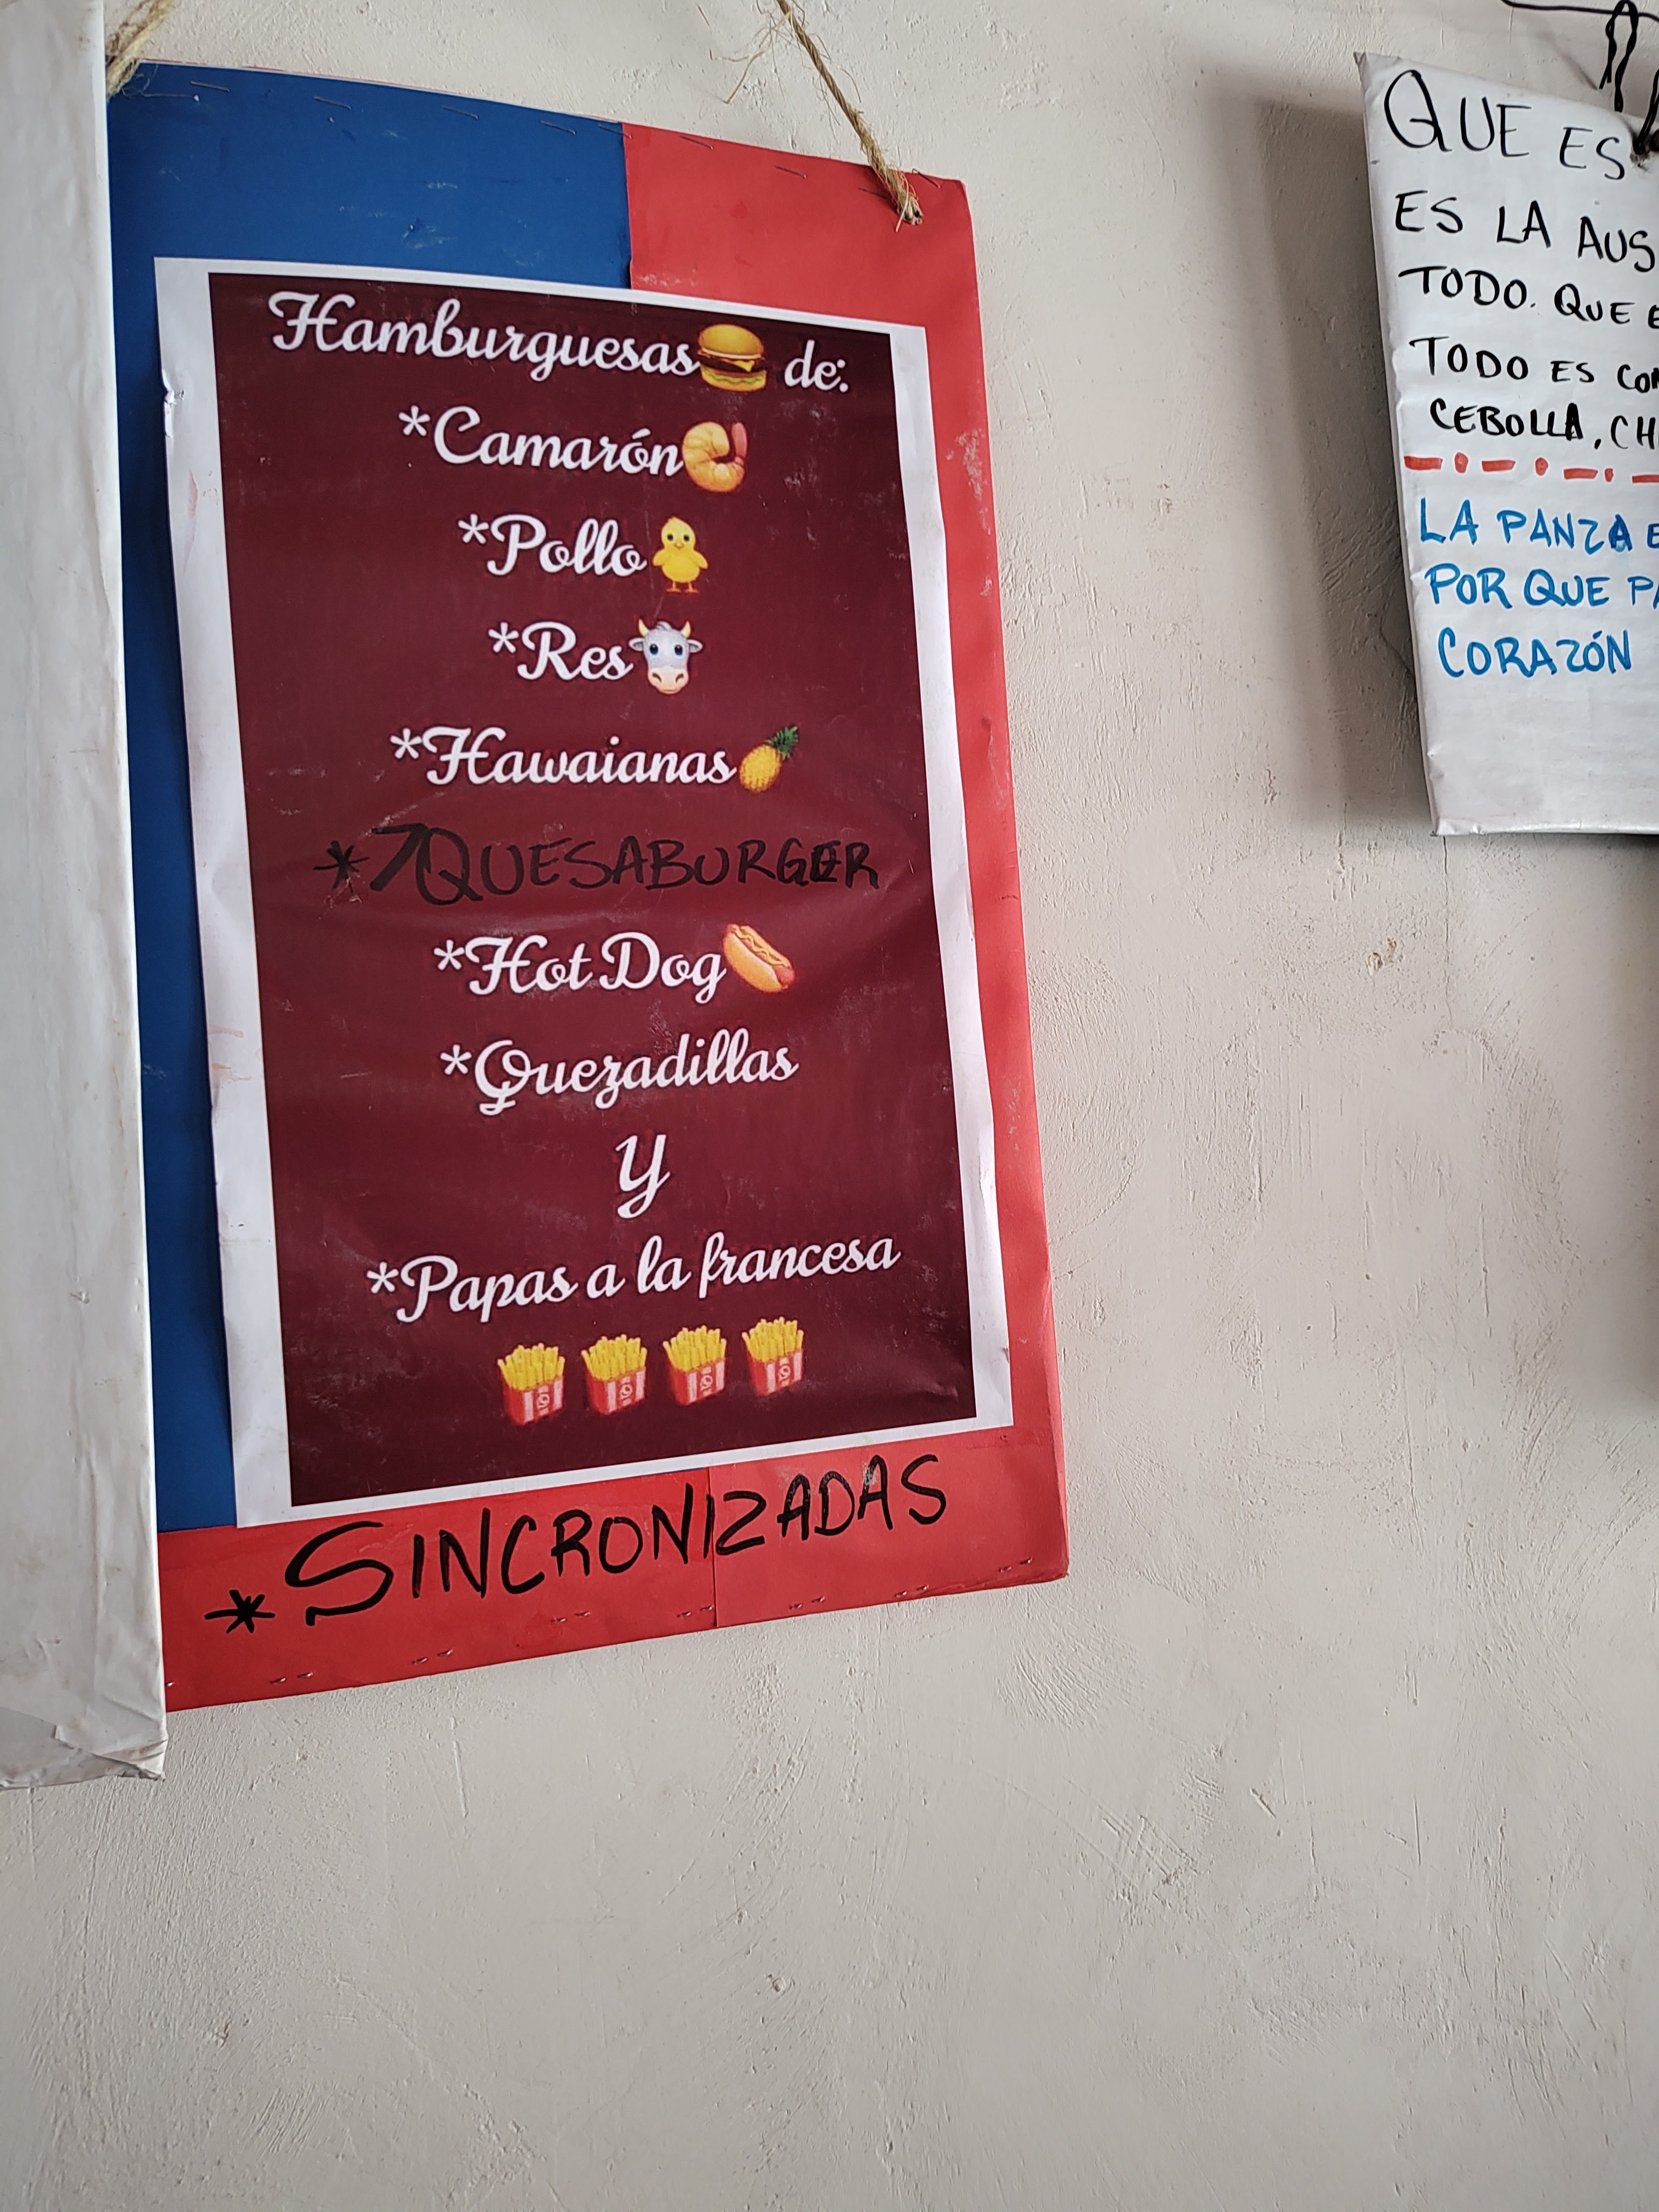 Hamburguesas de:
*Camarón
*Pollo
*Res
*Hawaianas
*7QUESABURGER
*Hot Dog
*Quezadillas
y
*Papas a la francesa
*SINCRONIZADAS
QUE ES
ES LA AUS
TODO. QUE E
TODO ES CON
CEBOLLA, CH
LA PANZA E
POR QUE PA
CORAZÓN